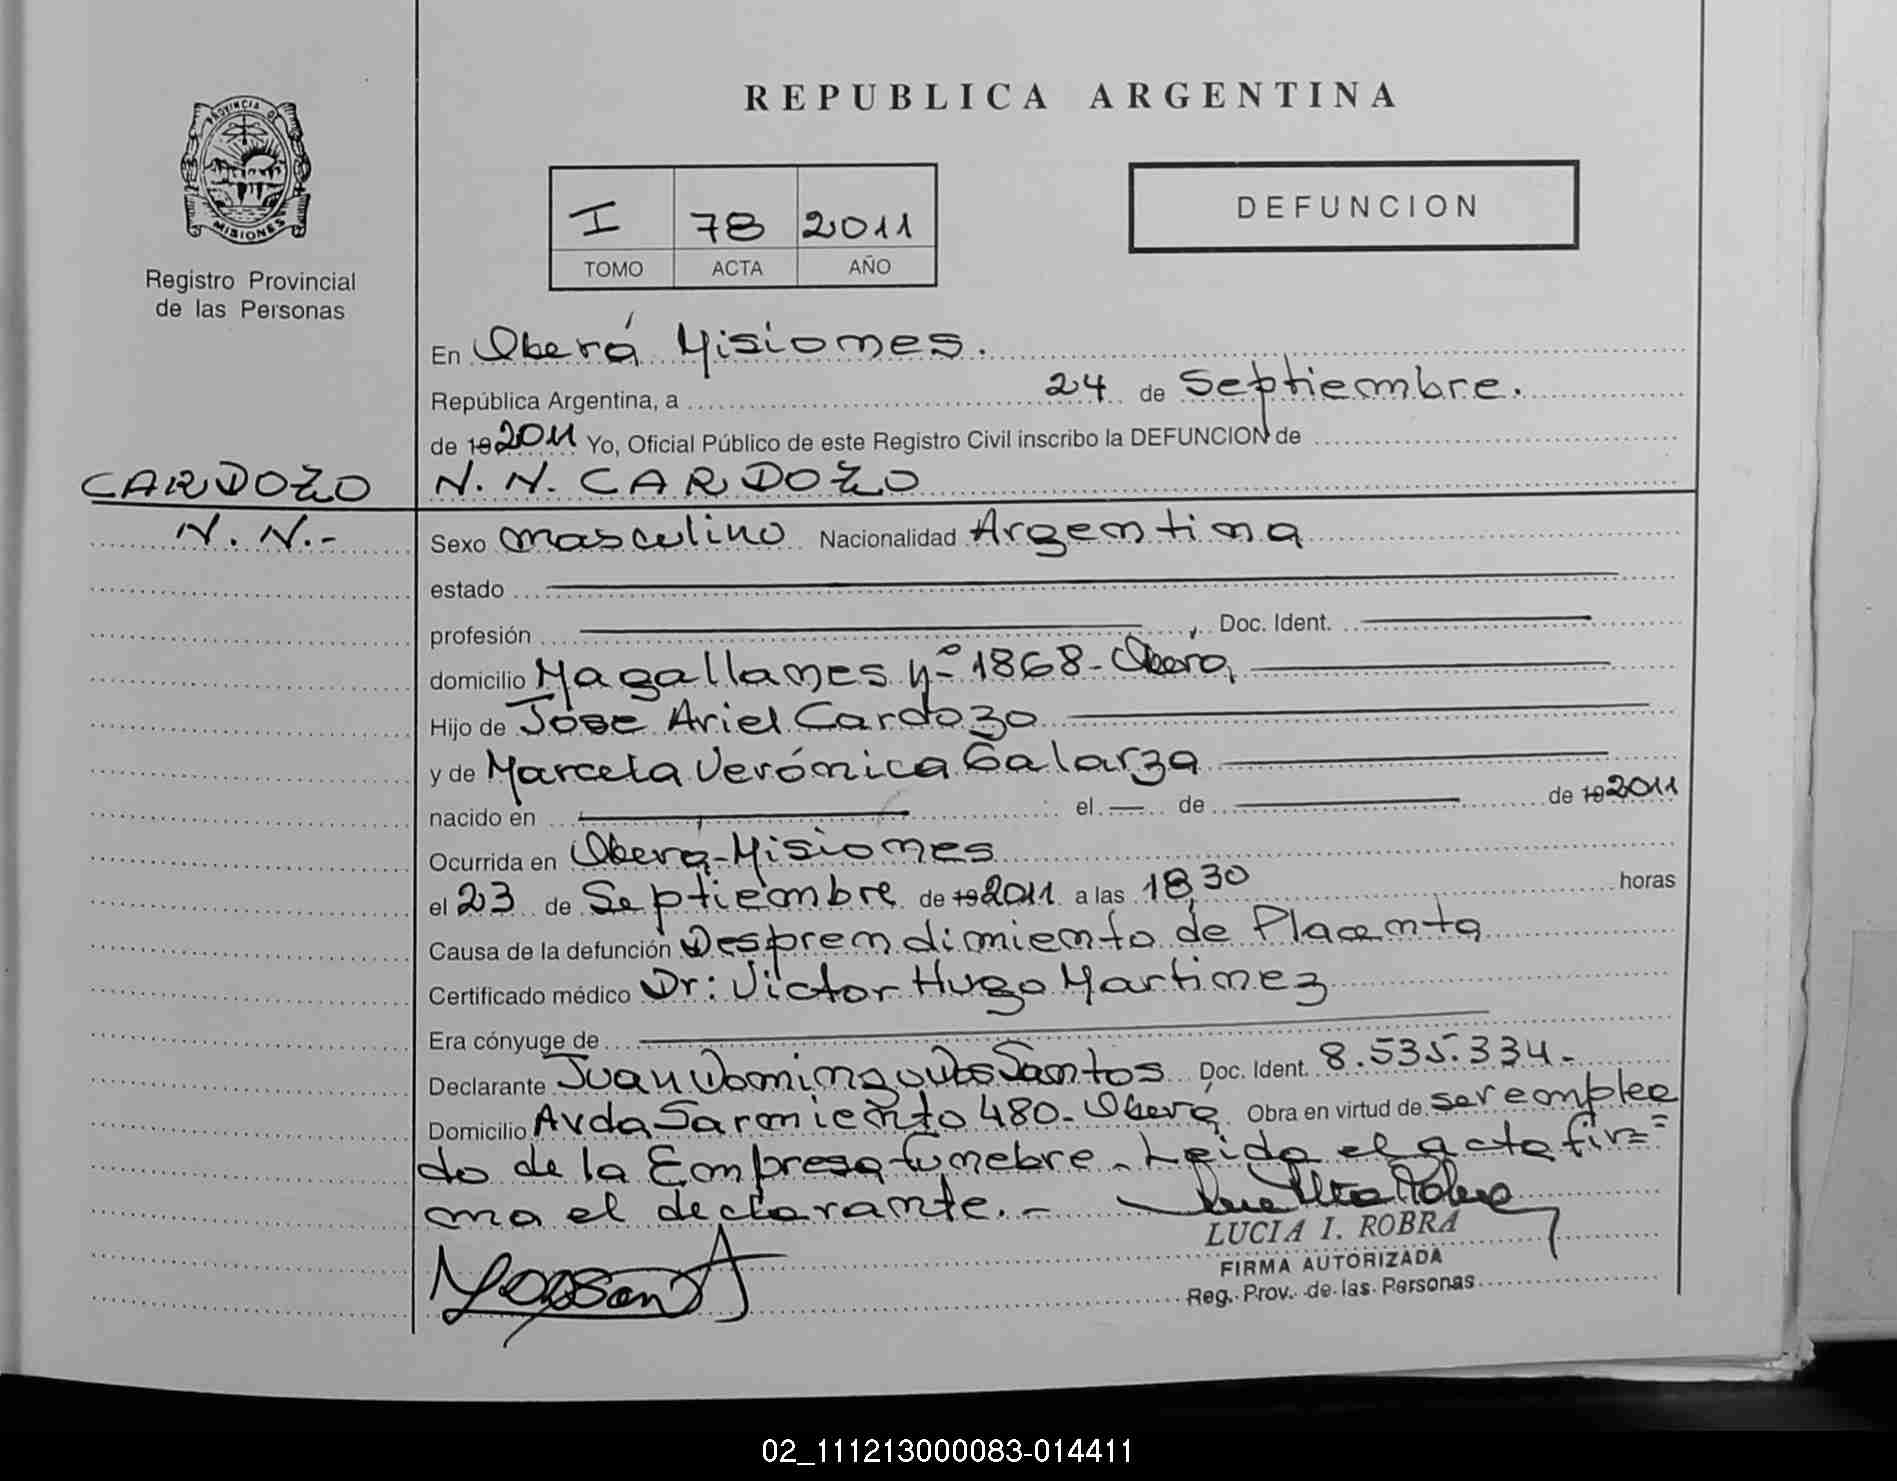 REPUBLICA ARGENTINA
PROVINCIA DE
MISIONES
Registro Provincial
de las Personas
I 78 2011
TOMO ACTA AÑO
DEFUNCION
En Oberá Misiones.
República Argentina, a 24 de Septiembre.
de 19 2011 Yo, Oficial Público de este Registro Civil inscribo la DEFUNCION de
CARDOZO
N. N. CARDOZO
N. N.-
Sexo masculino Nacionalidad Argentina
estado
profesión Doc. Ident.
domicilio Magallanes Nº 1868- Oberá,
Hijo de José Ariel Cardozo
y de Marcela Verónica Galarza
nacido en el de de 19 2011
Ocurrida en Oberá-Misiones
el 23 de Septiembre de 19 2011 a las 18,30 horas
Causa de la defunción Desprendimiento de Placenta
Certificado médico Dr: Victor Hugo Martinez
Era cónyuge de
Declarante Juan Domingo Dos Santos Doc. Ident. 8.535.334.-
Domicilio Avda Sarmiento 480- Oberá Obra en virtud de ser emplea
do de la Empresa fúnebre.- Leida el acta fir=
ma el declarante.-
LUCIA I. ROBRA
FIRMA AUTORIZADA
Reg. Prov. de las Personas
02_111213000083-014411